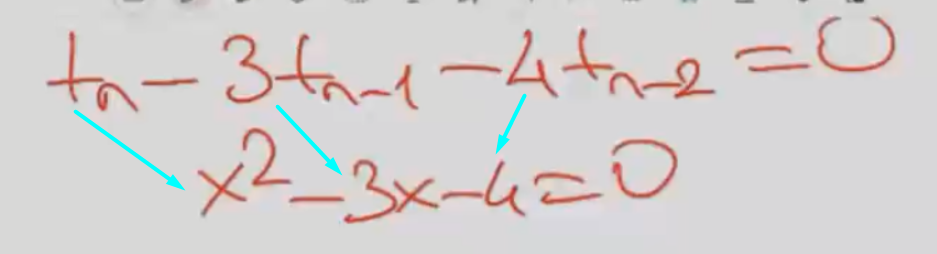 tₙ - 3tₙ₋₁ - 4tₙ₋₂ = 0
x² - 3x - 4 = 0